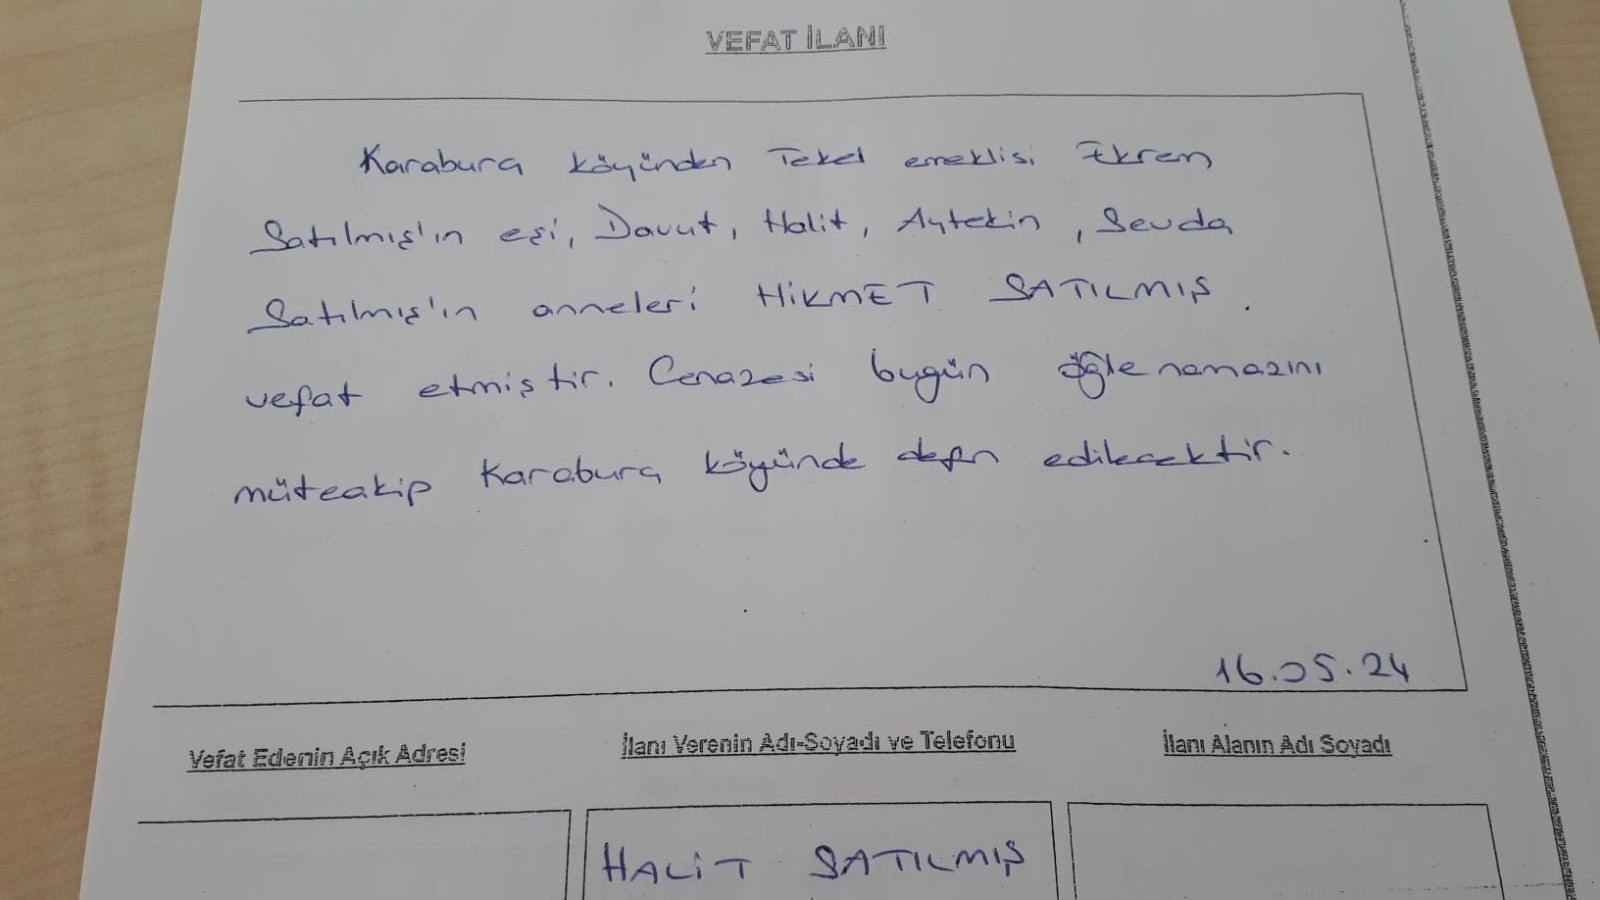 VEFAT İLANI
Karaburç köyünden Tekel emeklisi Ekrem
Satılmış'ın eşi, Davut, Halit, Aytekin, Sevda
Satılmış'ın anneleri HİKMET SATILMIŞ
vefat etmiştir. Cenazesi bugün öğle namazını
müteakip Karaburç köyünde defin edilecektir.
16.05.24
Vefat Edenin Açık Adresi
İlanı Verenin Adı-Soyadı ve Telefonu
İlanı Alanın Adı Soyadı
HALİT SATILMIŞ